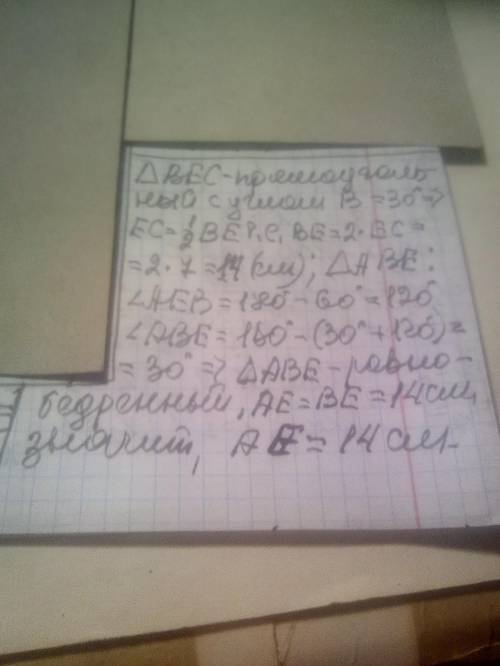 △BEC-прямоуголь-
ный с углом B = 30° =>
EC = 1/2 BE, т.е. BE = 2 · EC =
= 2 · 7 = 14 (см); △ABE:
∠AEB = 180° - 60° = 120°
∠ABE = 180° - (30° + 120°) =
= 30° => △ABE - равно-
бедренный, AE = BE = 14 см,
значит, AE = 14 см.